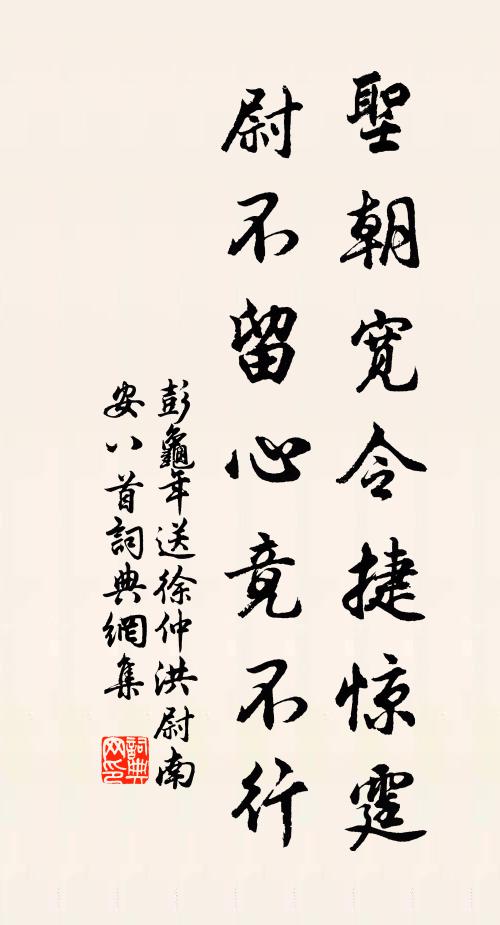 聖朝宽令捷惊霆
尉不留心竟不行
彭龜年送徐仲洪尉南
安八首詞典網集
詞典
网印